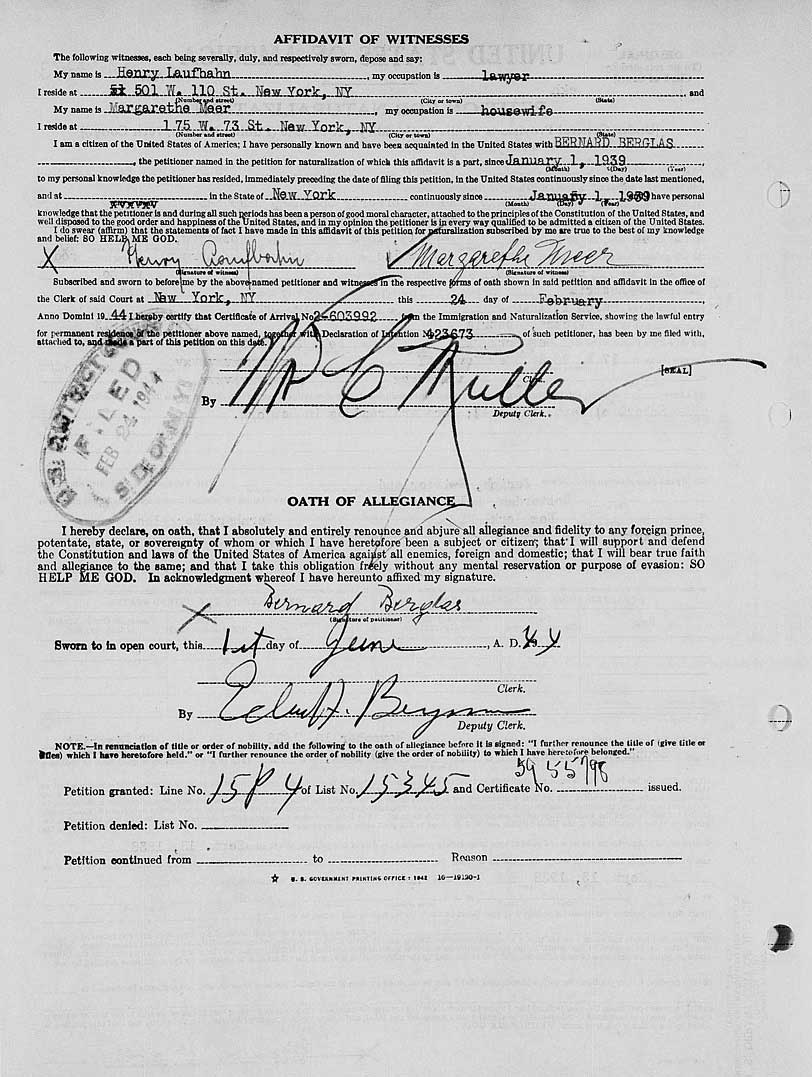 AFFIDAVIT OF WITNESSES
The following witnesses, each being severally, duly, and respectively sworn, depose and say:
My name is Henry Laufbahn, my occupation is lawyer
I reside at 501 W. 110 St. New York, NY and
(Number and street) (City or town) (State)
My name is Margarethe Meer, my occupation is housewife
I reside at 175 W. 73 St. New York, NY
(Number and street) (City or town) (State)
I am a citizen of the United States of America; I have personally known and have been acquainted in the United States with BERNARD BERGLAS
, the petitioner named in the petition for naturalization of which this affidavit is a part, since January 1, 1939,
(Month) (Day) (Year)
to my personal knowledge the petitioner has resided, immediately preceding the date of filing this petition, in the United States continuously since the date last mentioned,
and at in the State of New York continuously since January 1, 1939 have personal
(Month) (Day) (Year)
knowledge that the petitioner is and during all such periods has been a person of good moral character, attached to the principles of the Constitution of the United States, and
well disposed to the good order and happiness of the United States, and in my opinion the petitioner is in every way qualified to be admitted a citizen of the United States.
I do swear (affirm) that the statements of fact I have made in this affidavit of this petition for naturalization subscribed by me are true to the best of my knowledge
and belief: SO HELP ME GOD.
X Henry Laufbahn Margarethe Meer
(Signature of witness) (Signature of witness)
Subscribed and sworn to before me by the above-named petitioner and witnesses in the respective forms of oath shown in said petition and affidavit in the office of
the Clerk of said Court at New York, NY this 24 day of February,
Anno Domini 19 44 I hereby certify that Certificate of Arrival No 2-603992 from the Immigration and Naturalization Service, showing the lawful entry
for permanent residence of the petitioner above named, together with Declaration of Intention No 423673 of such petitioner, has been by me filed with,
attached to, and made a part of this petition on this date.
Clerk. [SEAL]
By
Deputy Clerk.
U.S. DISTRICT COURT
FILED
FEB 24 1944
S.D. OF N.Y.
OATH OF ALLEGIANCE
I hereby declare, on oath, that I absolutely and entirely renounce and abjure all allegiance and fidelity to any foreign prince,
potentate, state, or sovereignty of whom or which I have heretofore been a subject or citizen; that I will support and defend
the Constitution and laws of the United States of America against all enemies, foreign and domestic; that I will bear true faith
and allegiance to the same; and that I take this obligation freely without any mental reservation or purpose of evasion: SO
HELP ME GOD. In acknowledgment whereof I have hereunto affixed my signature.
X Bernard Berglas
(Signature of petitioner)
Sworn to in open court, this 1st day of June, A. D. 44
Clerk.
By
Deputy Clerk.
NOTE.—In renunciation of title or order of nobility, add the following to the oath of allegiance before it is signed: "I further renounce the title of (give title or
titles) which I have heretofore held." or "I further renounce the order of nobility (give the order of nobility) to which I have heretofore belonged."
Petition granted: Line No. 15 P 4 of List No. 15345 and Certificate No. 5955798 issued.
Petition denied: List No.
Petition continued from to Reason
☆ U. S. GOVERNMENT PRINTING OFFICE : 1942 16—19120-1